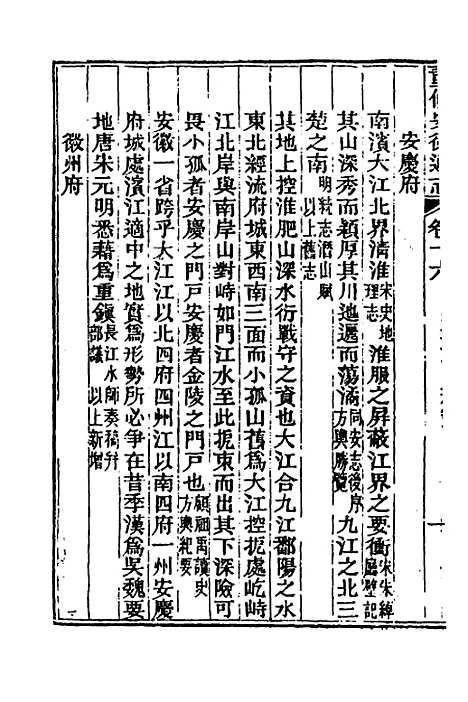 重修安徽通志 卷十六
安慶府
南濱大江北界清淮宋史地理志淮服之屏蔽江界之要衝宋朱綽廳壁記
其山深秀而穎厚其川迤邐而蕩潏同安志後序方輿勝覽九江之北三
楚之南明統志潛山賦以上舊志
其地上控淮肥山深水衍戰守之資也大江合九江鄱陽之水
東北經流府城東西南三面而小孤山舊為大江控扼處屹峙
江北岸與南岸山對峙如門江水至此扼束而出其下深險可
畏小孤者安慶之門戶安慶者金陵之門戶也顧祖禹讀史方輿紀要
安徽一省跨乎大江江以北四府四州江以南四府一州安慶
府城處濱江適中之地實為形勢所必爭在昔季漢為吳魏要
地唐宋元明悉藉為重鎭長江水師奏稿幷部議 以上新增
徽州府